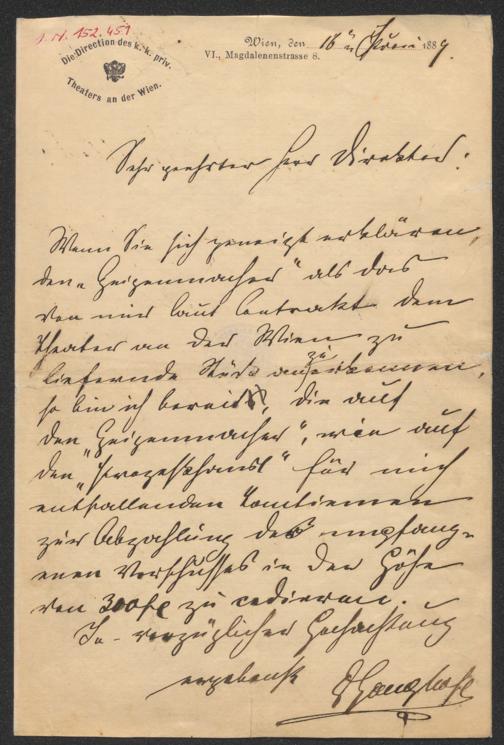 I. N. 152.451
Die Direction des k. k. priv.
Theaters an der Wien.
Wien, den 16ten Juni 1889.
VI., Magdalenenstrasse 8.
Sehr geehrter Herr Direktor!
Wenn Sie sich geneigt erklären,
den „Geigenmacher“ als das
von mir laut Contrakt dem
Theater an der Wien zu
liefernde Stück anzuerkennen,
so bin ich bereit, die auf
den „Geigenmacher“, wie auf
den „Prozeßhansl“ für mich
entfallenden Tantiemen
zur Abzahlung des empfang-
enen Vorschusses in der Höhe
von 300 fl zu cedieren.
In vorzüglicher Hochachtung
ergebenst
Ganghofer